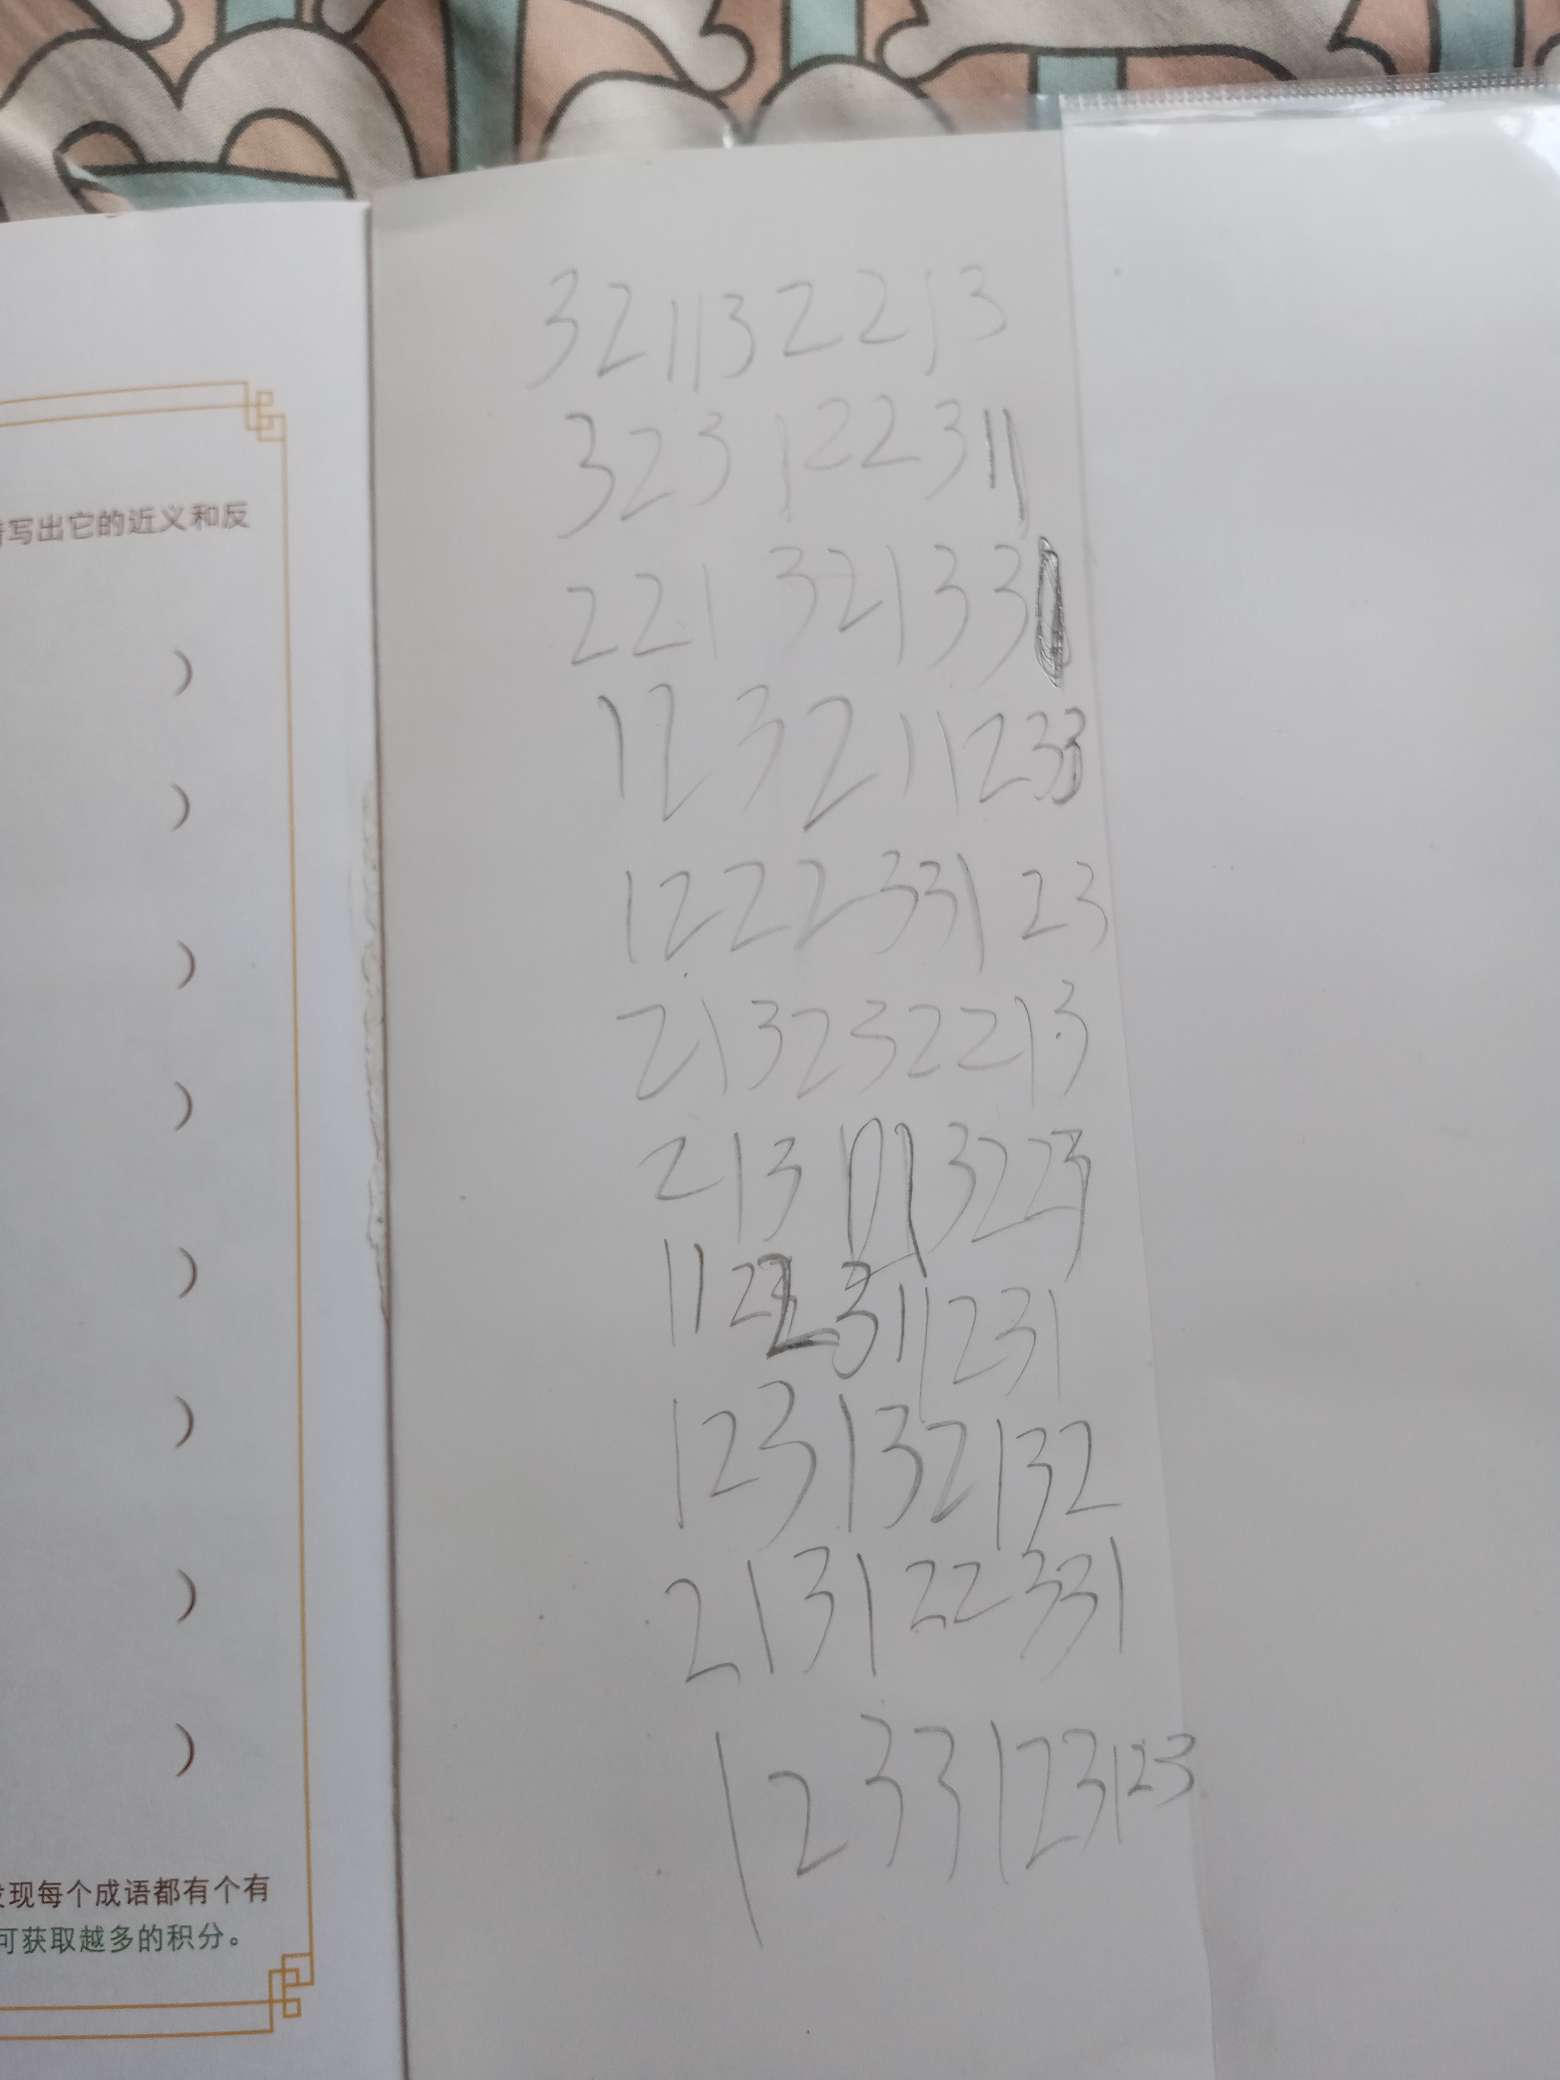 写出它的近义和反
）
）
）
）
）
）
）
）
现每个成语都有个有
可获取越多的积分。
321132213
323122311
22132133
123211233
122233123
213232213
213 3223
11 2 2311231
123132132
213122331
1233123123